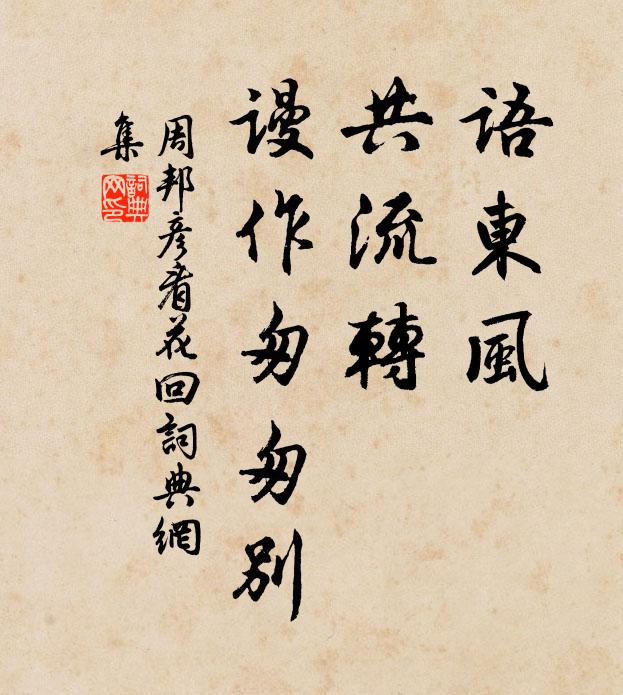 語東風
共流轉
謾作匆匆別
周邦彥看花回詞典網
集
詞典
网印